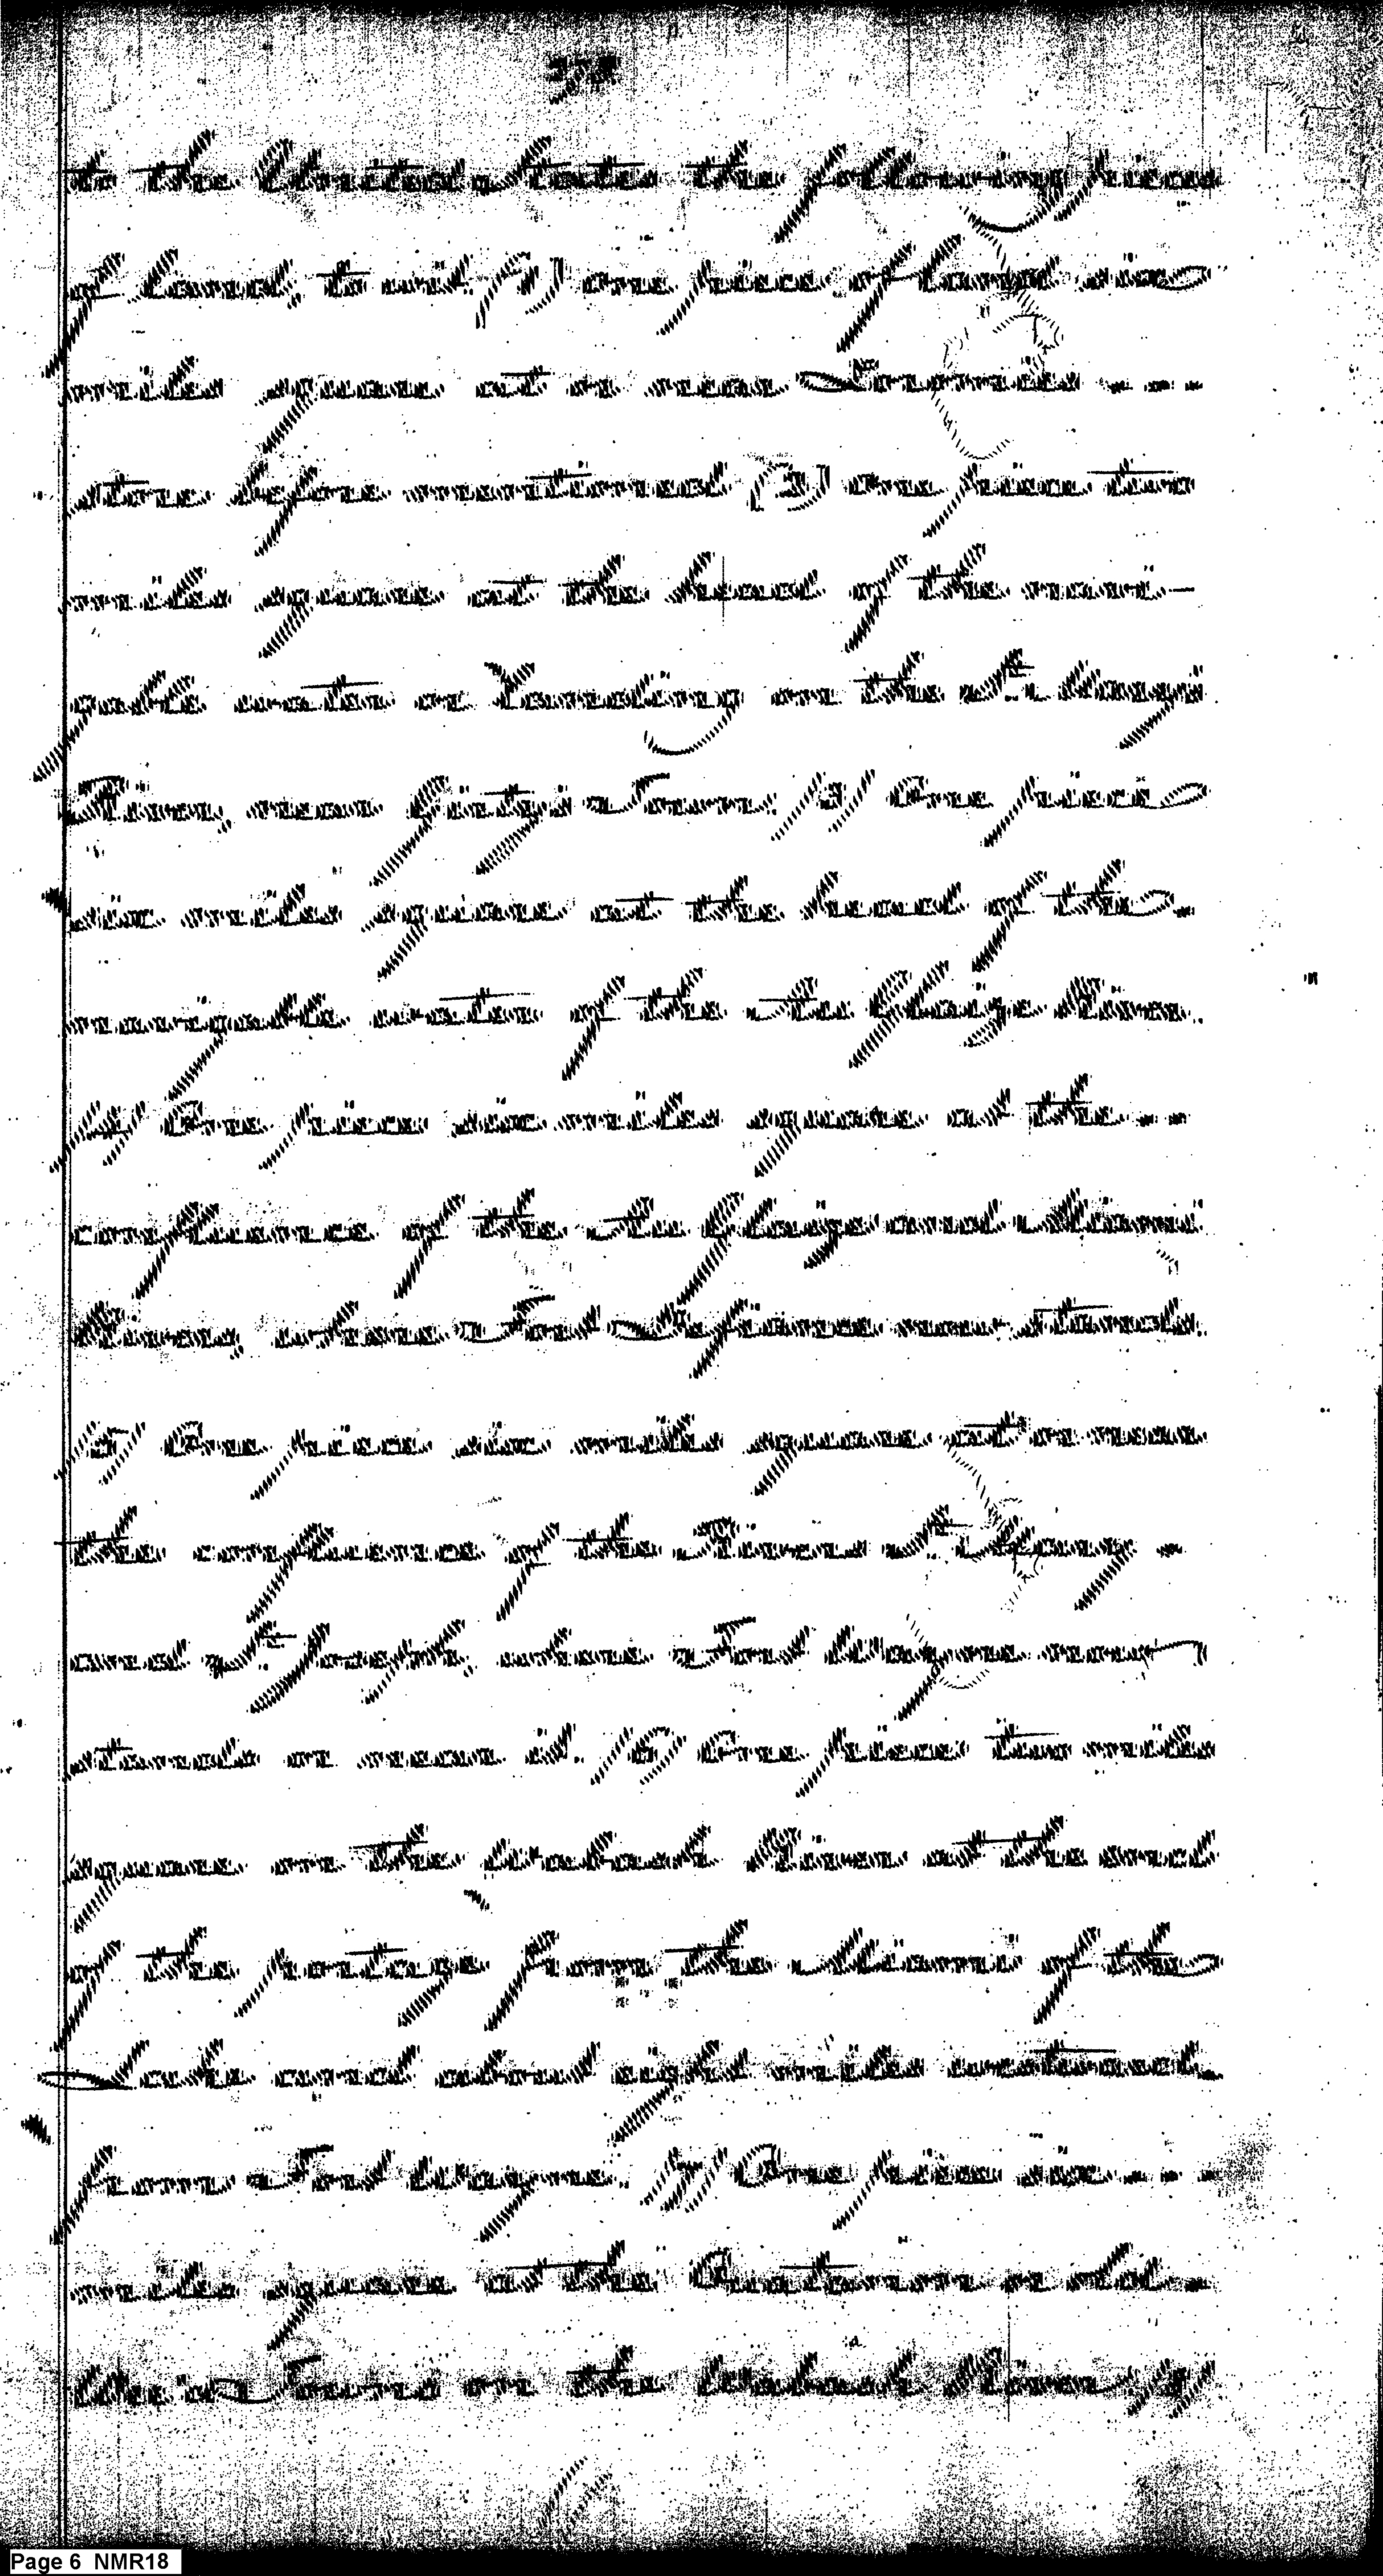 to the United States the following pieces
of land, to wit. (1) one piece of land six
miles square at or near Loromie's
store before mentioned (2) one piece two
miles square at the head of the navi-
gable water or landing on the St. Mary's
River, near Girty's Town. (3) One piece
six miles square at the head of the
navigable water of the Au Glaize River.
(4) One piece six miles square at the
confluence of the Au Glaize and Miami
Rivers, where Fort Defiance now stands.
(5) One piece six miles square at or near
the confluence of the Rivers St. Mary's
and St. Joseph's, where Fort Wayne now
stands or near it. (6) One piece two miles
square on the Wabash River at the end
of the portage from the Miami of the
Lake and about eight miles westward
from Fort Wayne. (7) One piece six
miles square at the Ouatanon or old
Wea Towns on the Wabash River, (8)
Page 6 NMR18